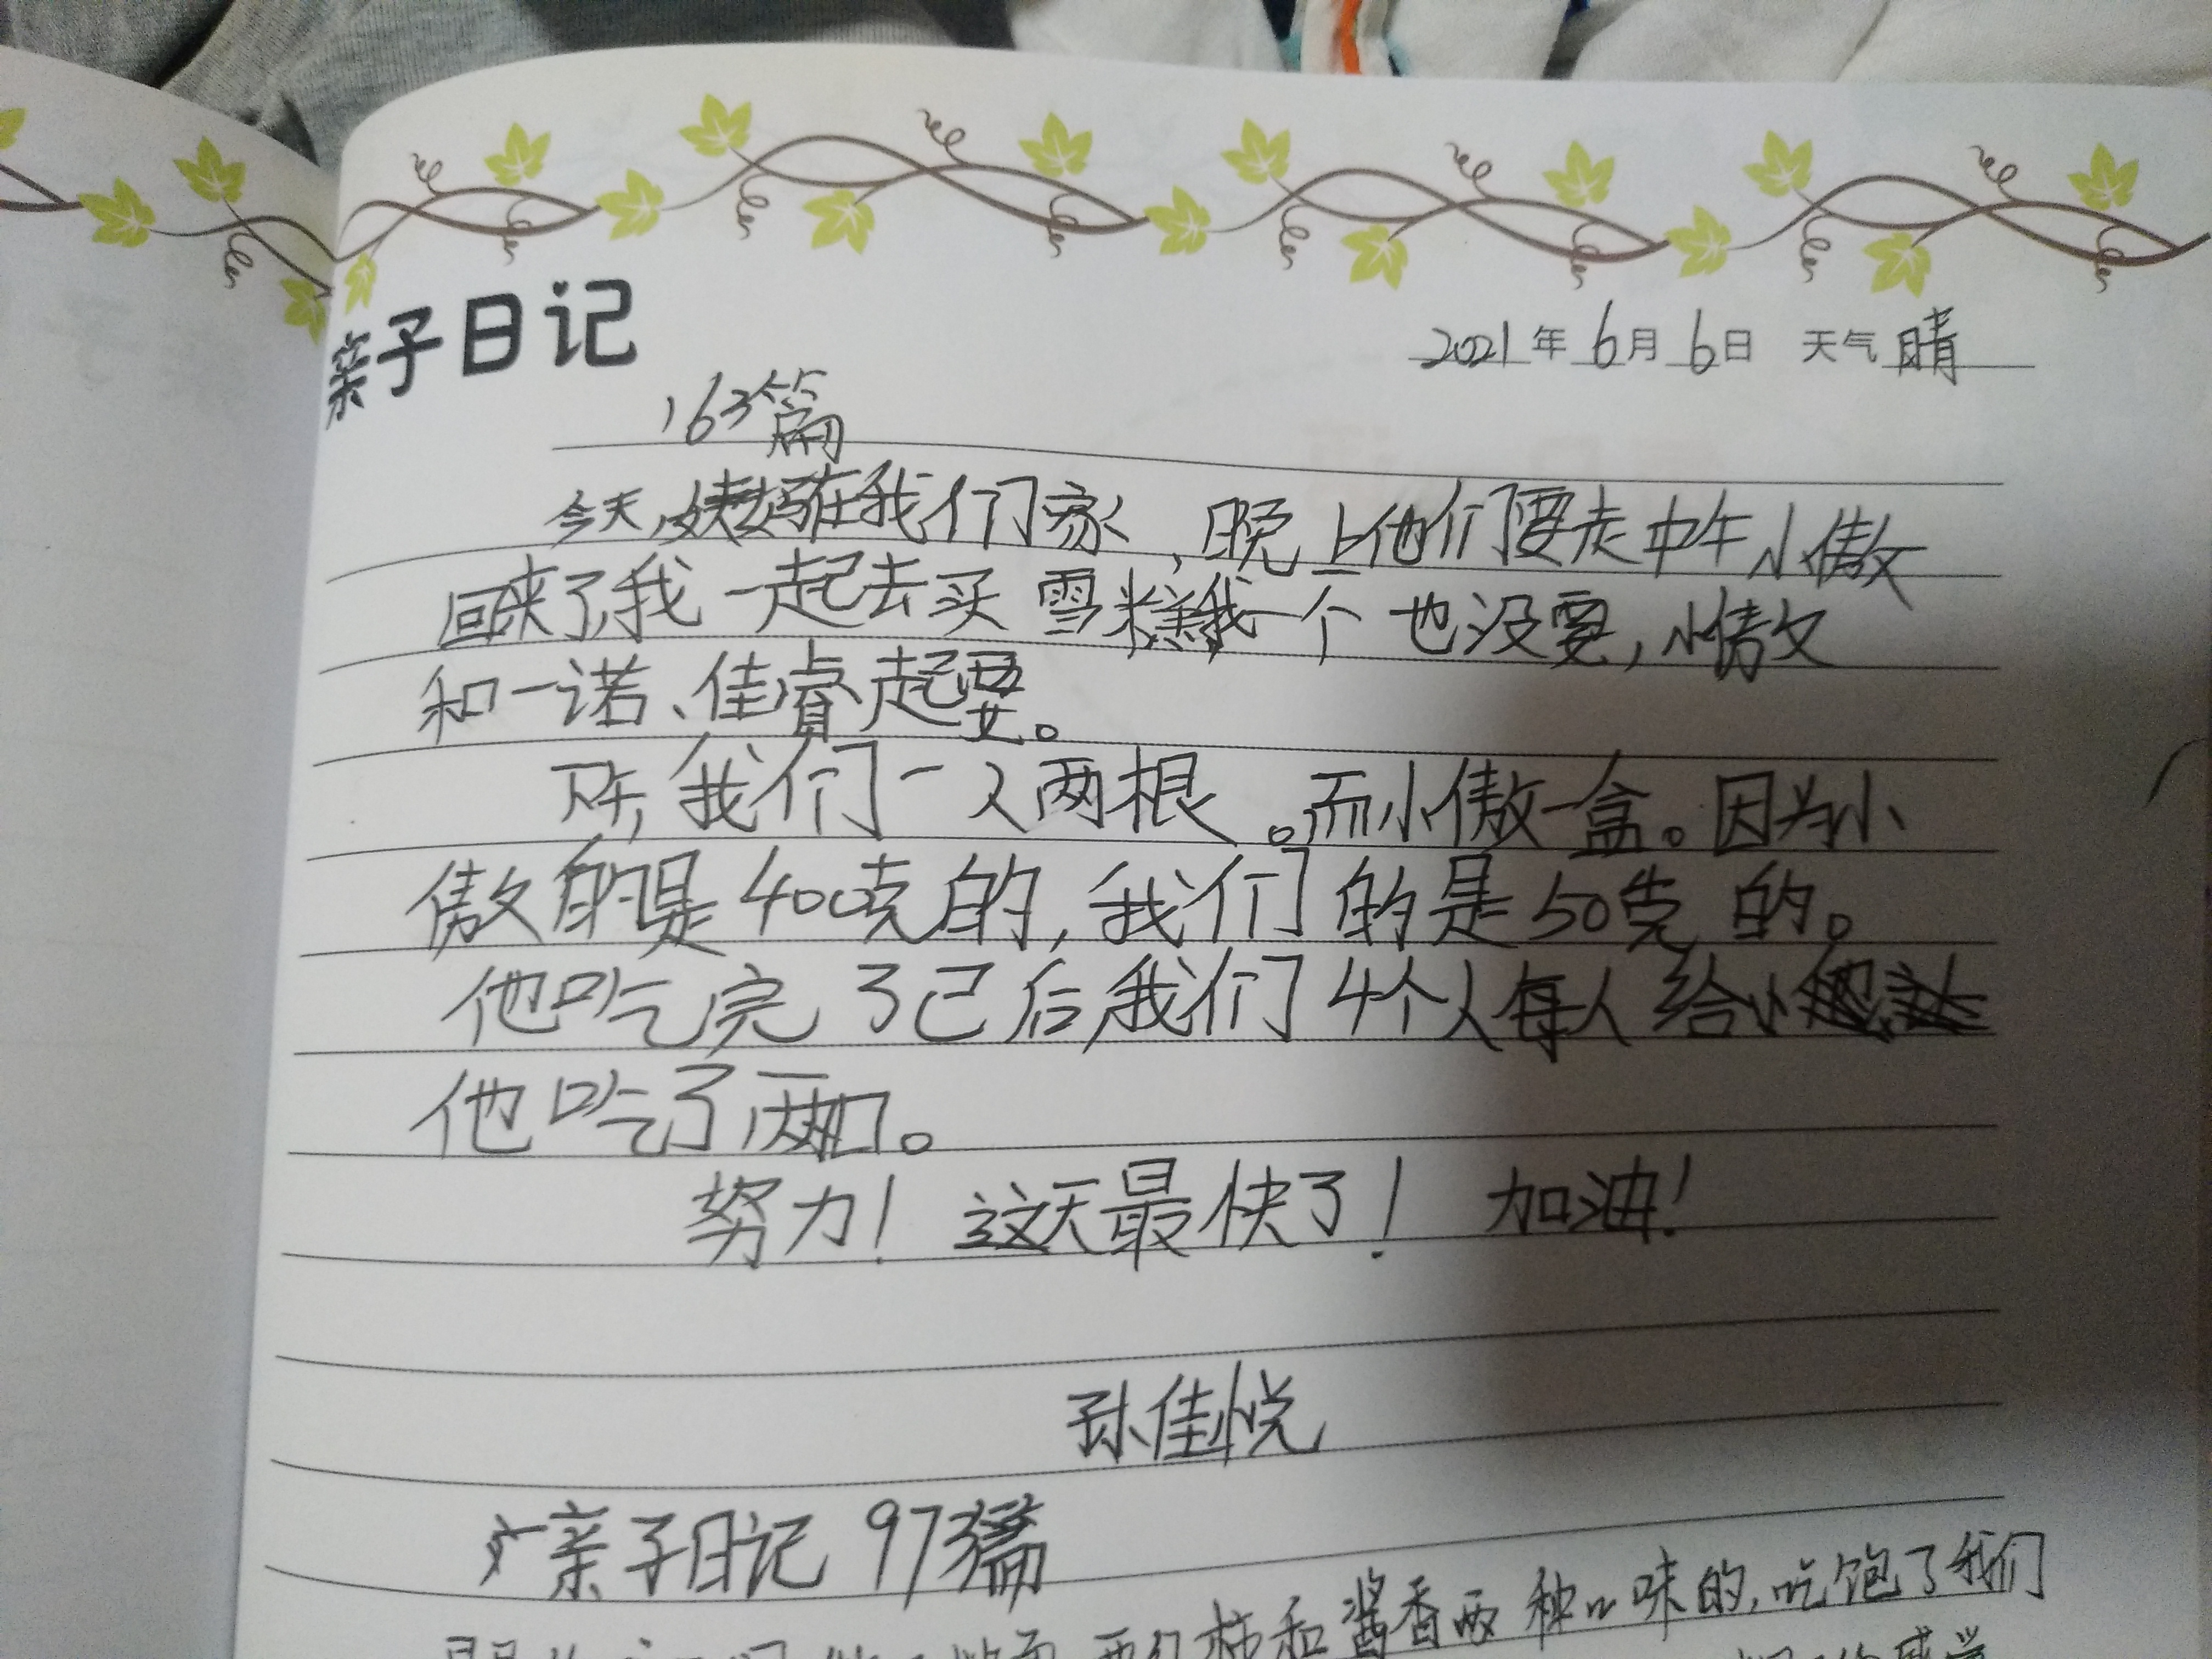 亲子日记
2021年6月6日 天气晴
163篇
今天,姨妈在我们家,晚上他们要走中午小傲
回来了,我一起去买雪糕我一个也没要,小傲
和一诺、佳睿起要。
下午,我们一人两根。而小傲一盒。因为小
傲的是400克的,我们的是50克的。
他吃完了已后,我们4个人每人给小
他吃了两口。
努力!这天最快了!加油!
孙佳悦
亲子日记 97篇
和酱香两种口味的,吃饱了我们